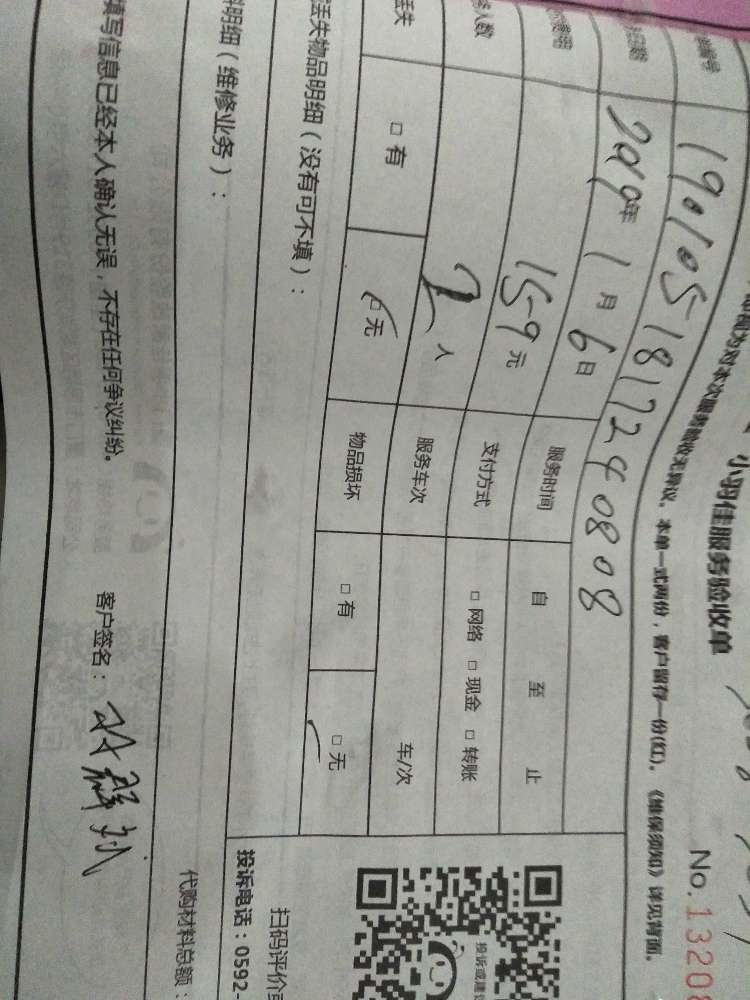 小羽佳服务验收单
No. 1320
对本次服务验收无异议。本单一式两份，客户留存一份(红)。《维保须知》详见背面。
编号 1901051817240808
日期 2019年 1月 6日 服务时间 自 至 止
费用 159元 支付方式 □ 网络 □ 现金 □ 转账
人数 2人 服务车次 车/次
丢失 □ 有 □ 无 物品损坏 □ 有 □ 无
丢失物品明细（没有可不填）：
扫码评价
投诉或建议
投诉电话：0592-
明细（维修业务）：
代购材料总额：
填写信息已经本人确认无误，不存在任何争议纠纷。 客户签名：